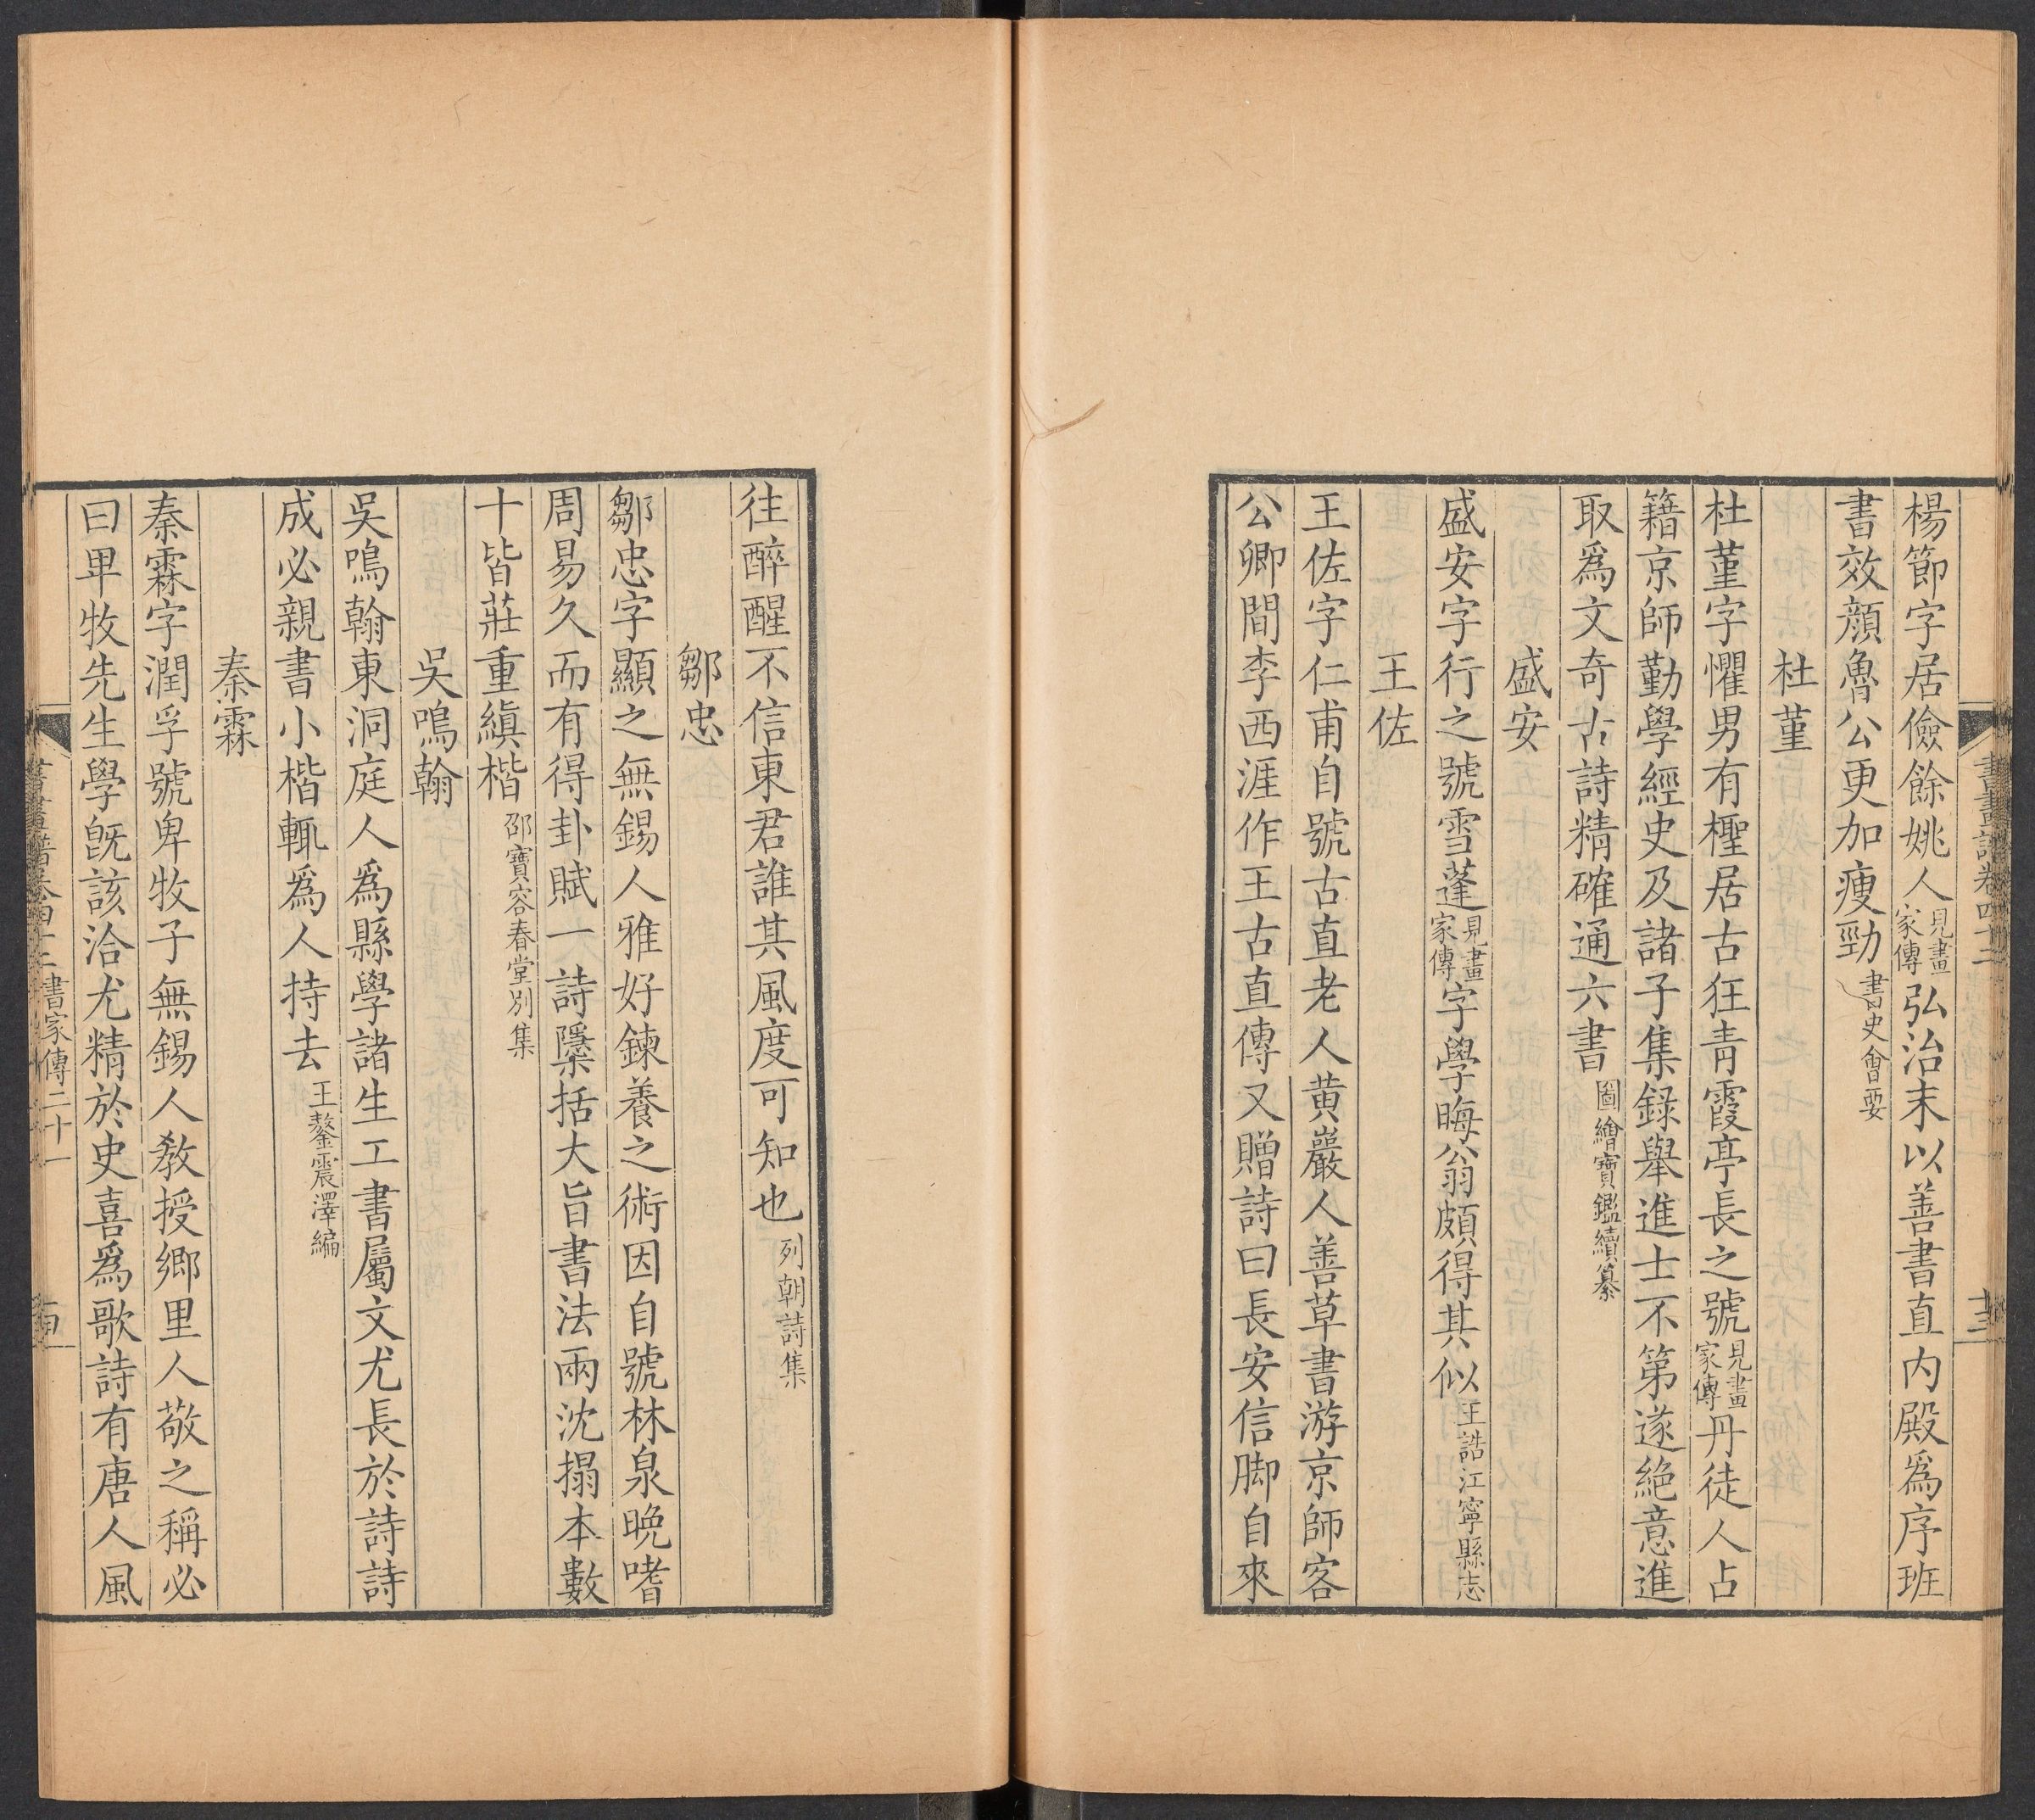 楊節字居儉餘姚人見畫家傳弘治末以善書直內殿爲序班
書效顔魯公更加瘦勁書史會要
杜堇
杜堇字懼男有檉居古狂靑霞亭長之號見畫家傳丹徒人占
籍京師勤學經史及諸子集録舉進士不第遂絶意進
取爲文奇古詩精確通六書圖繪寶鑑續纂
盛安
盛安字行之號雪蓬見畫家傳字學晦翁頗得其似王誥江寧縣志
王佐
王佐字仁甫自號古直老人黄巖人善草書游京師客
公卿間李西涯作王古直傳又贈詩曰長安信脚自來
往醉醒不信東君誰其風度可知也列朝詩集
鄒忠
鄒忠字顯之無錫人雅好鍊養之術因自號林泉晩嗜
周易久而有得卦賦一詩隱括大旨書法兩沈搨本數
十皆莊重縝楷邵寶容春堂別集
吳鳴翰
吳鳴翰東洞庭人爲縣學諸生工書屬文尤長於詩詩
成必親書小楷輒爲人持去王鏊震澤編
秦霖
秦霖字潤孚號卑牧子無錫人敎授鄉里人敬之稱必
曰卑牧先生學旣該洽尤精於史喜爲歌詩有唐人風
書畫譜卷四十二 書家傳二十一